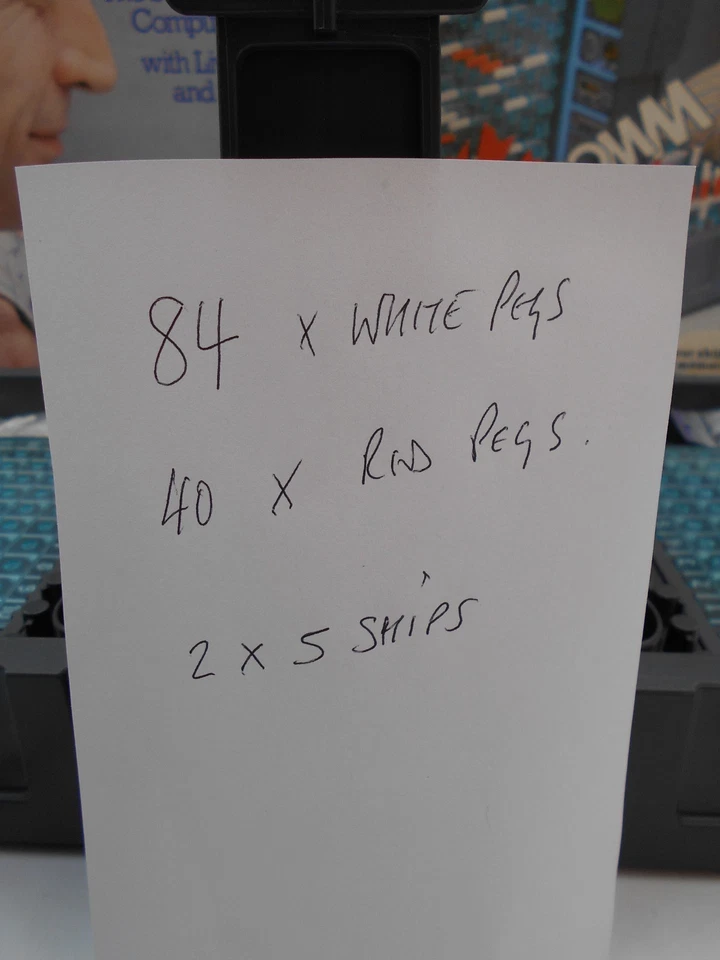 Compu
with Li
and
84 x WHITE PEGS
40 x RED PEGS.
2 x 5 SHIPS